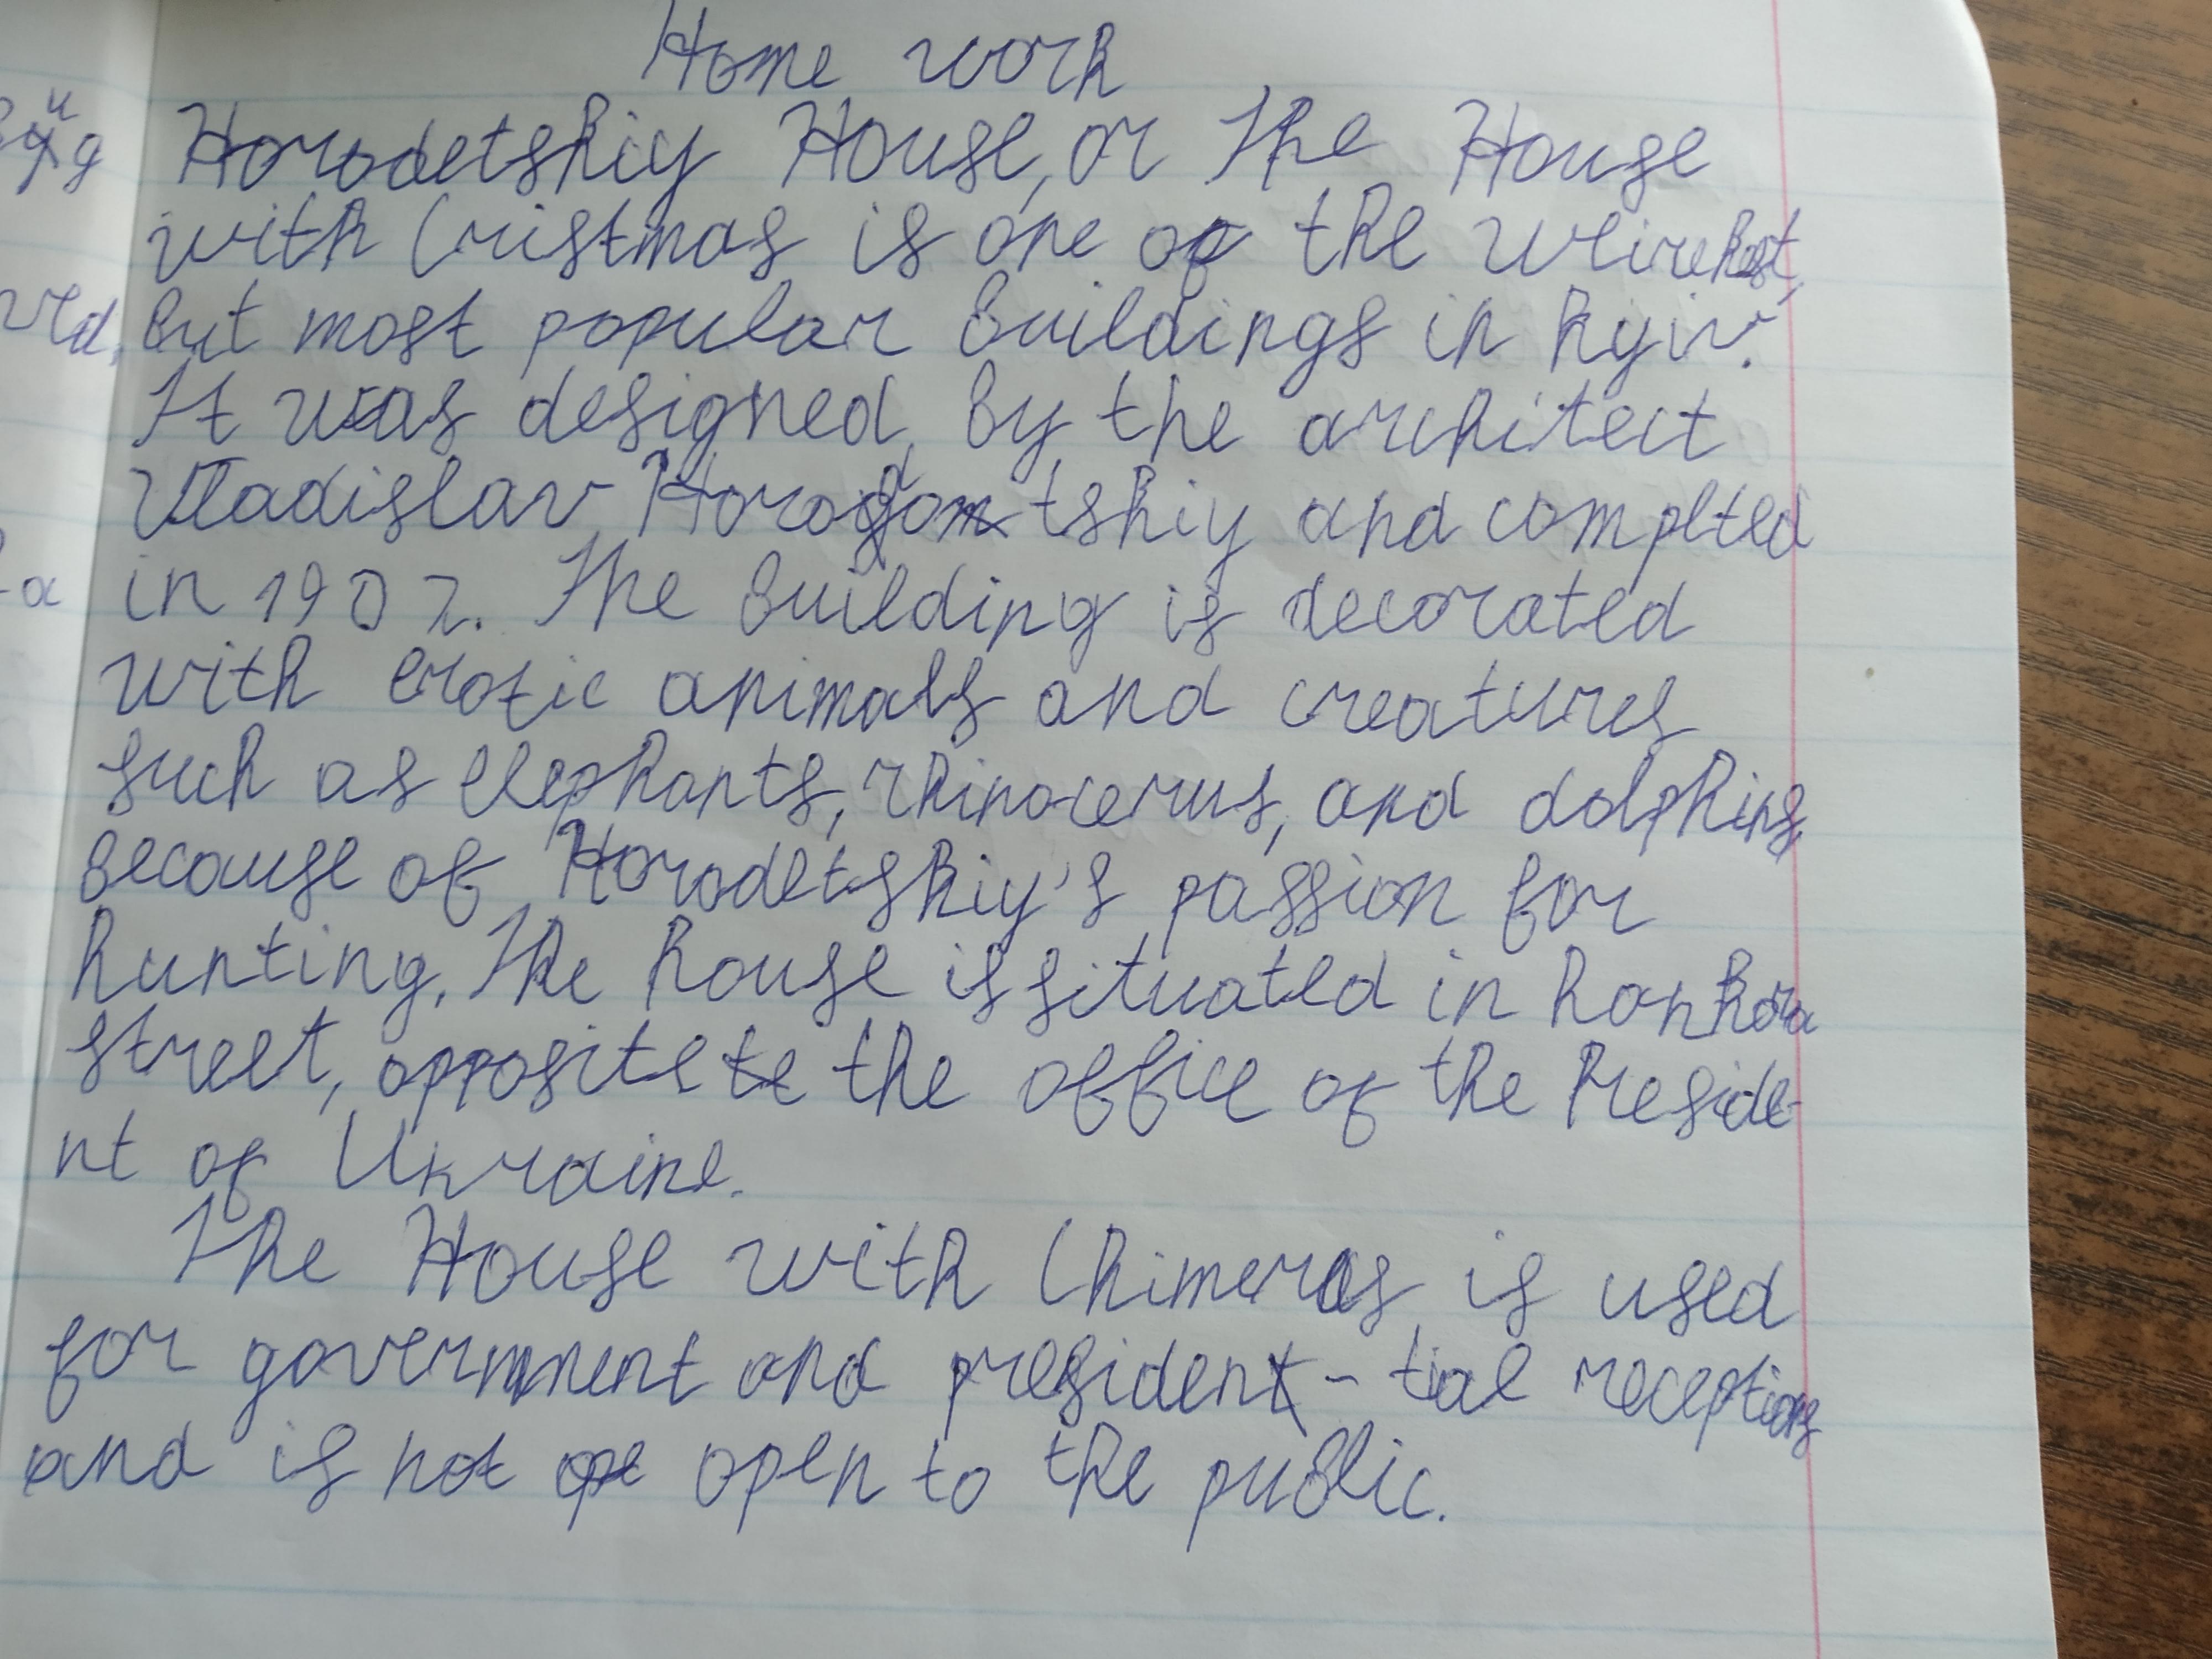 Home work
Horodetskiy House, or The House
with Cristmas is one of the
but most popular buildings in kyiv.
It was designed by the architect
Vladislav tskiy and complted
in 1907. The building is decorated
with erotic animals and creatures
such as elephants, rhinocerus, and dolphins,
because of Horodetskiy's passion for
hunting. The house is situated in
street, opposite te the office of the Preside-
nt of Ukraine.
The House with Chimeras is used
for government and presiden - tial receptions
and is not ope open to the public.